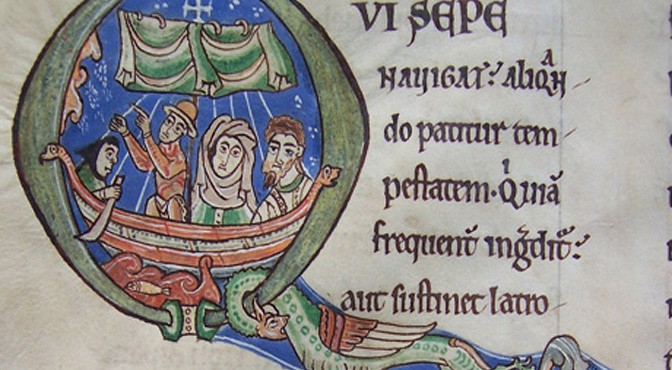 QVI SEPE
NAVIGAT: ALIQᵃN
do patitur tem
pestatem. Qⁱ uiā
frequent̄ ingᵉditᵘ:
aut sustinet latro